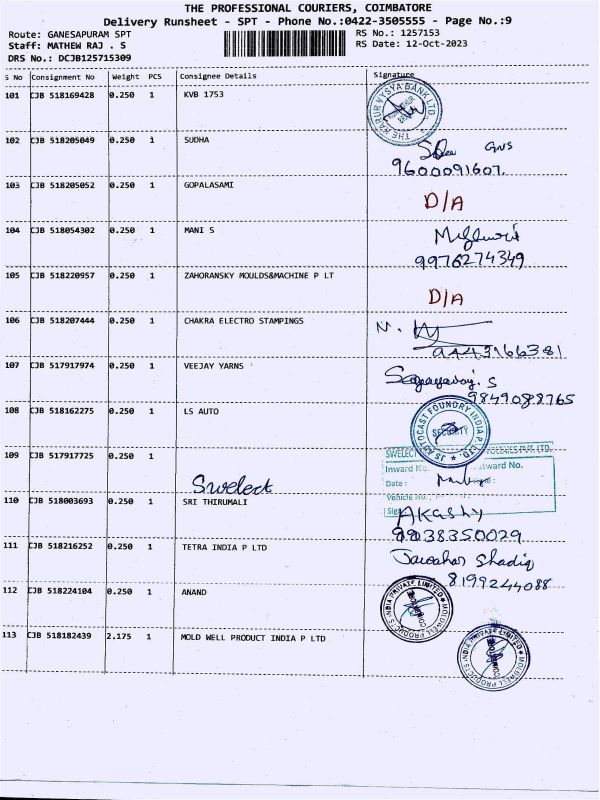 THE PROFESSIONAL COURIERS, COIMBATORE
Delivery Runsheet - SPT - Phone No.:0422-3505555 - Page No.:9
Route: GANESAPURAM SPT RS No.: 1257153
Staff: MATHEW RAJ . S RS Date: 12-Oct-2023
DRS No.: DCJB125715309
S No Consignment No Weight PCS Consignee Details Signature
101 CJB 518169428 0.250 1 KVB 1753 THE KARUR VYSYA BANK LTD.
102 CJB 518205049 0.250 1 SUDHA
9600091607.
103 CJB 518205052 0.250 1 GOPALASAMI
D/A
104 CJB 518054302 0.250 1 MANI S
9976274349
105 CJB 518220957 0.250 1 ZAHORANSKY MOULDS&MACHINE P LT
D/A
106 CJB 518207444 0.250 1 CHAKRA ELECTRO STAMPINGS
9443166381
107 CJB 517917974 0.250 1 VEEJAY YARNS
9849088765
108 CJB 518162275 0.250 1 LS AUTO JS AUTOCAST FOUNDRY INDIA P. LTD. SECURITY
109 CJB 517917725 0.250 1 SWELECT PVT. LTD.
Inward No. Outward No.
Date :
Swelect Vehicle No.
110 CJB 518003693 0.250 1 SRI THIRUMALI Sig
AKASHY
9038350029
111 CJB 518216252 0.250 1 TETRA INDIA P LTD Jawahar Shadiq
8199244088
112 CJB 518224104 0.250 1 ANAND MOLDWELL PRODUCTS INDIA PRIVATE LIMITED
113 CJB 518182439 2.175 1 MOLD WELL PRODUCT INDIA P LTD MOLDWELL PRODUCTS INDIA PRIVATE LIMITED